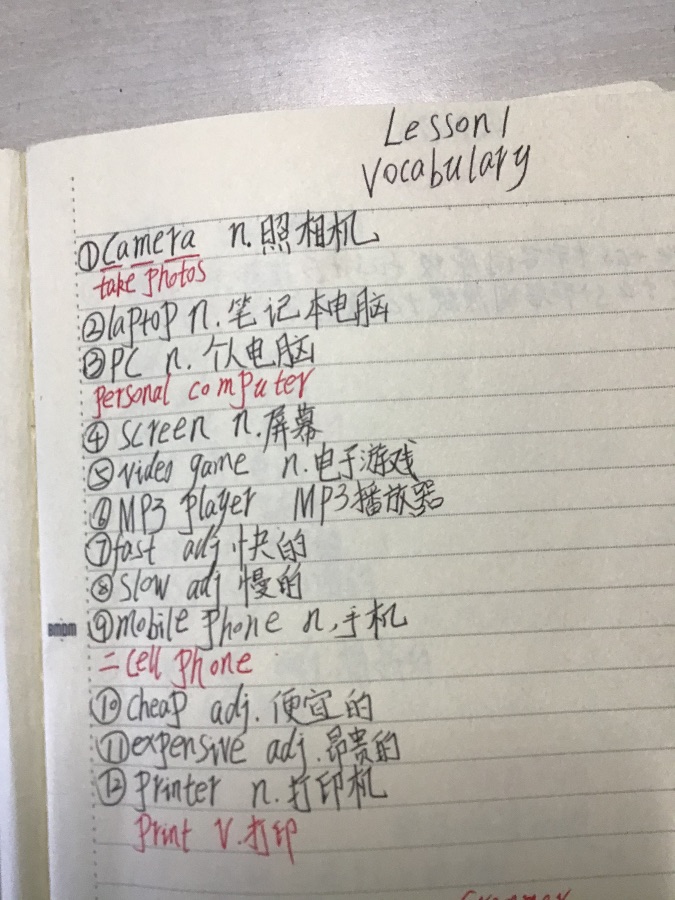 Lesson 1
Vocabulary
①Camera n.照相机
take photos
②laptop n.笔记本电脑
③PC n.个人电脑
personal computer
④screen n.屏幕
⑤video game n.电子游戏
⑥MP3 player MP3播放器
⑦fast adj 快的
⑧slow adj 慢的
⑨mobile phone n.手机
=cell phone
⑩cheap adj.便宜的
⑪expensive adj.昂贵的
⑫printer n.打印机
print v.打印